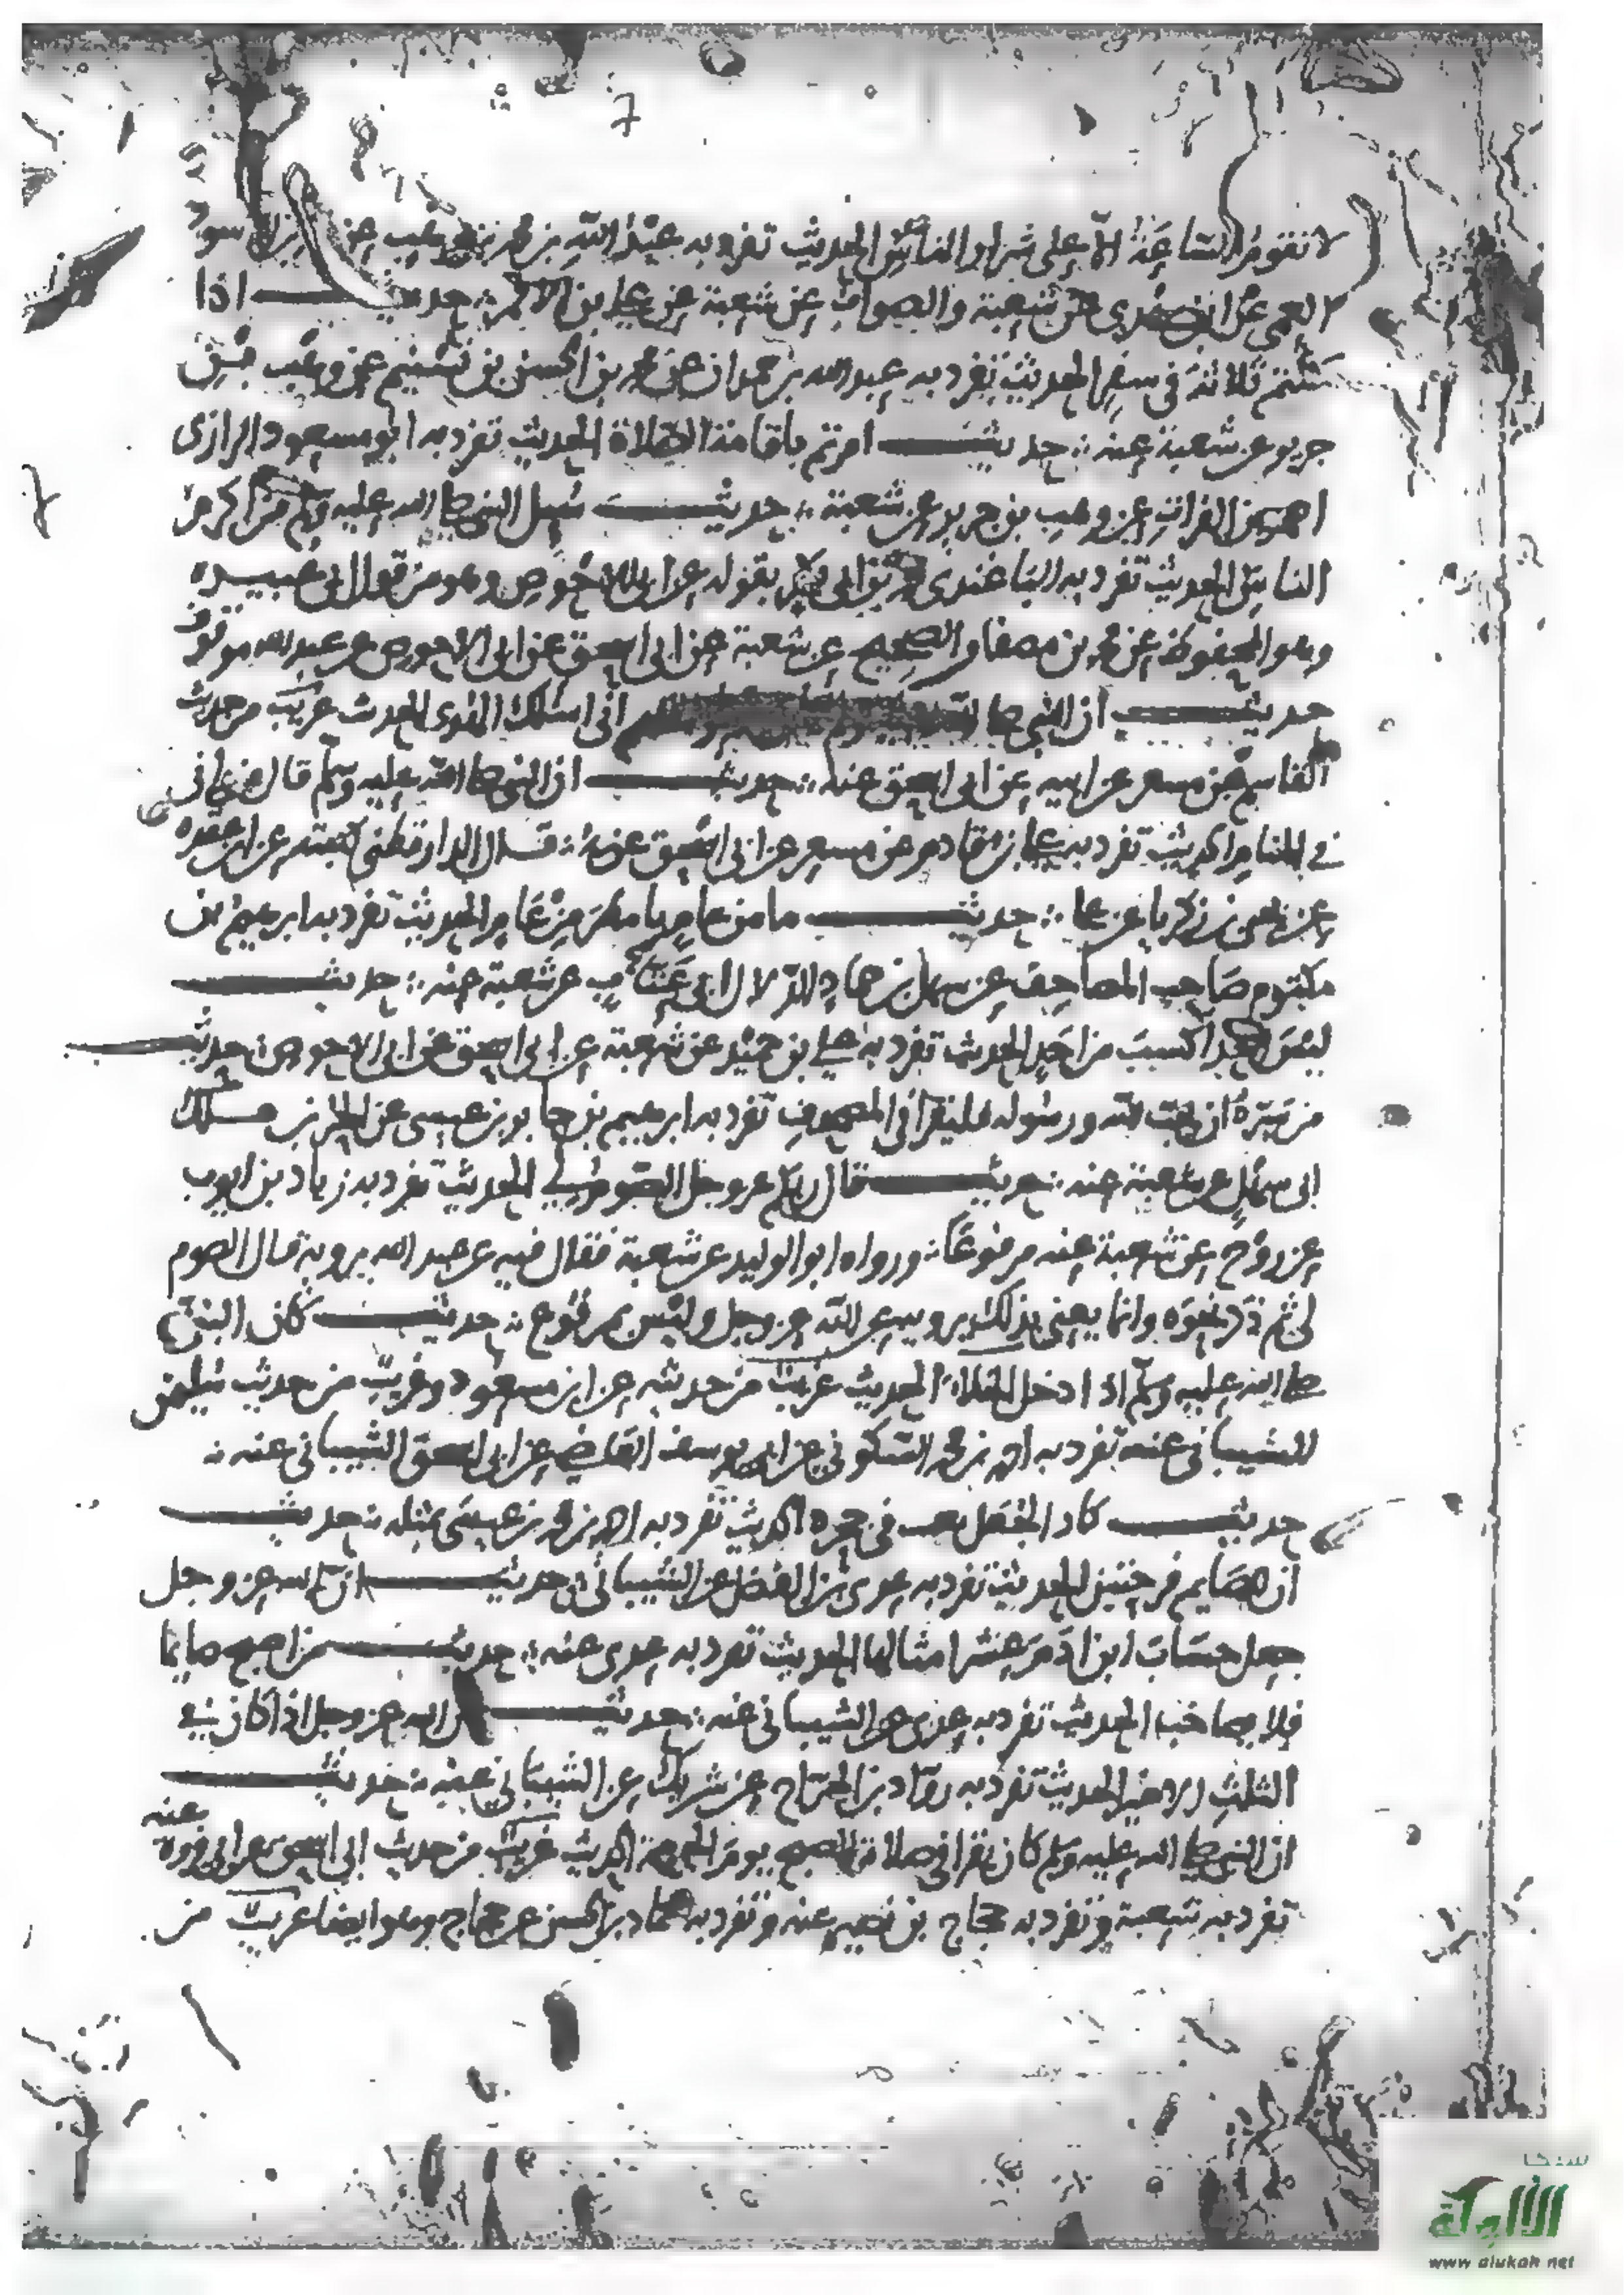 7
لا تقوم الساعة الا على شرار الناس الحديث تفرد به عبد الله بن محمد بن
عن شعبة والصواب عن شعبة عن علي بن الاقمر حديث اذا
كنتم ثلاثة في سفر الحديث تفرد به عبد الله بن حمدان عن محمد بن الحسن بن تسنيم عن وهب بن
جرير عن شعبة عنه حديث امرتم باقامة الصلاة الحديث تفرد به ابو مسعود الرازي
احمد بن الفرات عن وهب بن جرير عن شعبة حديث سئل النبي صلى الله عليه وسلم من اكرم
الناس الحديث تفرد به الباغندي بقوله عن ابي الاحوص وهو من قول ابي عبيدة
وهو المحفوظ عن محمد بن مصفا والصحيح عن شعبة عن ابي اسحق عن ابي الاحوص عن عبد الله موقوف
حديث ان النبي صلى اني اسئلك الهدى الحديث غريب من حديث
القاسم بن معن عن ابي اسحق عنه حديث ان النبي صلى الله عليه وسلم قال من راني
في المنام الحديث تفرد به علي بن قادم عن مسعر عن ابي اسحق عنه قال الدارقطني كتبته عن ابن عقدة
عن زكريا عن حديث ما من عام بامطر من عام الحديث تفرد به ابراهيم بن
مكتوم صاحب المصاحف عن سهل بن حماد الدلال ابي عتاب عن شعبة عنه حديث
ليس احد اكسب من احد الحديث تفرد به علي بن حميد عن شعبة عن ابي اسحق عن ابي الاحوص حديث
من سره ان يحب الله ورسوله فليقرا في المصحف تفرد به ابراهيم بن جابر بن عيسى عن الحر بن ملك
ابي سهل عن شعبة عنه حديث قال ربكم عز وجل الصوم لي الحديث تفرد به زياد بن ايوب
عن روح عن شعبة عنه مرفوعا ورواه ابو الوليد عن شعبة فقال فيه عن عبد الله يرويه قال الصوم
لي ثم ذكر نحوه وانما يعني بذلك يرويه عن الله عز وجل وليس بمرفوع حديث كان النبي
صلى الله عليه وسلم اذا دخل الخلاء الحديث غريب من حديثه عن ابن مسعود وغريب من حديث سليمن
الشيباني عنه تفرد به احمد بن محمد السكوني عن ابي يوسف القاضي عن ابي اسحق الشيباني عنه
حديث كاد الجعل يعذب في جحره الحديث تفرد به احمد بن محمد بن عيسى مثله حديث
ان للصايم فرحتين الحديث تفرد به عدي بن الفضل عن الشيباني حديث ان الله عز وجل
جعل حسنات ابن ادم عشر امثالها الحديث تفرد به عدي عنه حديث من اصبح صايما
فلا يصاخب الحديث تفرد به عدي عن الشيباني عنه حديث ان الله عز وجل اذا كان في
الثلث الاخير الحديث تفرد به رواد بن الجراح عن شريك عن الشيباني عنه حديث
ان النبي صلى الله عليه وسلم كان يقرا في صلاة الصبح يوم الجمعة الحديث غريب من حديث ابي اسحق عن ابي فروة عنه
تفرد به شعبة وتفرد به حجاج بن نصير عنه وتفرد به حماد بن الحسن عن حجاج وهو ايضا غريب من
شبكة
الألوكة
www alukah net